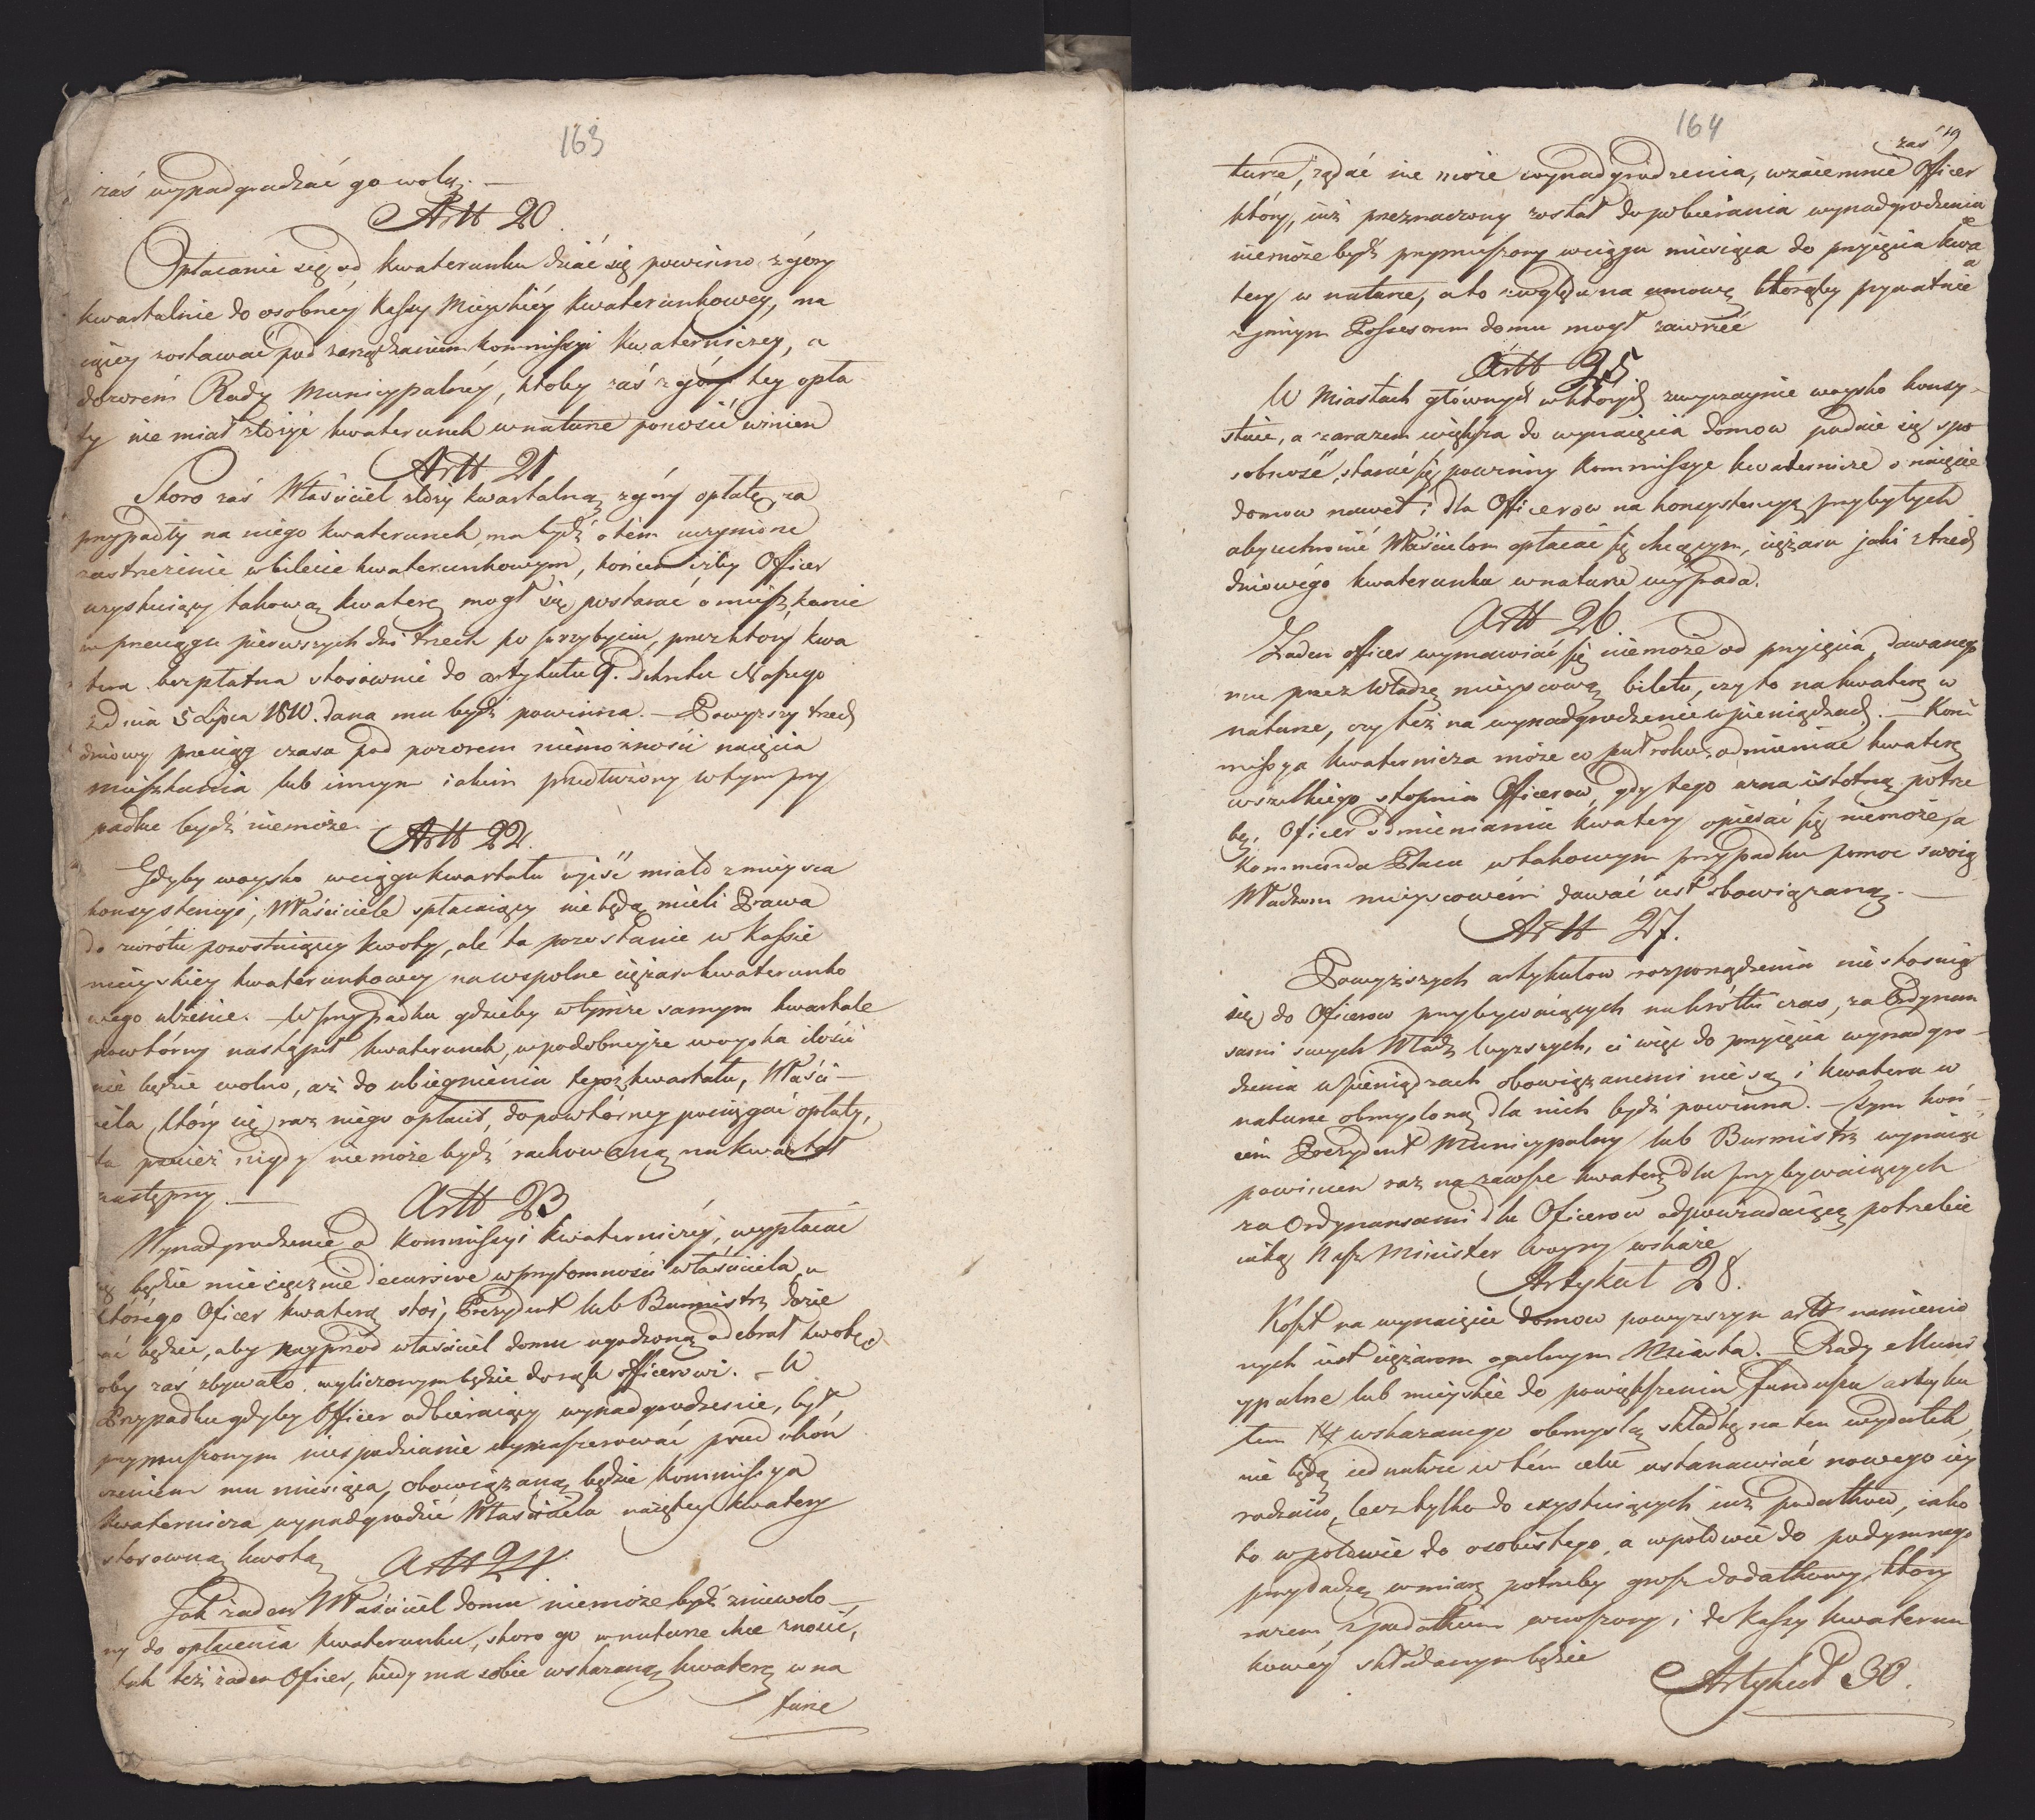 163
zaś wynadgradzać go wolą. —
Artt 20.
Opłacanie się od kwaterunku dziać się powinno z góry
kwartalnie do osobnéy Kassy Mieyskiéy kwaterunkowey, ma
iącey zostawać pod zarządzaniem Kommissyi Kwaterniczey, a
dozorém Rady Municypalnéy, ktoby zaś z góry tey opła
ty nie miał złożyć kwaterunek w naturze ponosić winien
Artt 21
Skoro zaś Właściciel złoży kwartalną z góry opłatę za
przypadły na niego kwaterunek, ma bydź o tém uczynione
zastrzeżenie w bilecie kwaterunkowym, końcem iżby Officer
uzyskuiący takową kwaterę mogł się postarać o mieszkanie
w przeciągu pierwszych dni trzech po przybyciu, przez który kwa
tera bezpłatna stosownie do artykułu 9. Dekretu Naszego
z dnia 5 Lipca 1810. dana mu bydź powinna. — Powyższy trzech
dniowy przeciąg czasu pod pozorem niemożności naięcia
mieszkania lub innym iakim przedłużony w tym przy
padku bydź niemoże.
Artt 22.
Gdyby woysko w ciągu kwartału wyiść miało z mieysca
konsystencyi, Właściciele opłacaiący nie będą mieli Prawa
do zwrótu pozostaiącey kwoty, ale ta pozostanie w Kassie
mieyskiey kwaterunkowey na wspolne ciężaru kwaterunko
wego ulżenie. — W przypadku gdzieby w tymże samym kwartale
powtórny nastąpił kwaterunek, w podobneyże woyska ilości
nie będzie wolno, aż do ubiegnienia tegoż kwartału, Właści—
ciela, który się raz niego opłacił, do powtórney pociągać opłaty,
ta ponież nigdy nie może bydź rachowaną na kwartał
następny. —
Artt 23
Wynadgrodzenie od Kommissyi Kwaterniczéy, wypłacać
się będzie miesięcznie decursive w przytomności właściciela, u
którego Oficer kwaterą stoi, Prezydent lub Burmistrz dozie
rać będzie, aby nayprzod właściciel domu ugodzoną odebrał kwotę, co
by zaś zbywało, wyliczonym będzie do rąk officerowi. — W
Przypadku gdyby Officer odbieraiący wynadgrodzenie, był
przymuszonym niespodzianie wymaszerować przed ukoń
czeniem mu miesiąca, obowiązaną będzie Kommissya
Kwaternicza wynadgrodzić Właściciela naiętey kwatery
stosowną kwotą
Artt 24.
Jak żaden Właściciel domu niemoże bydź zniewolo—
ny do opłacenia kwaterunku, skoro go w naturze chce znosić,
tak też żaden Oficer, kiedy ma sobie wskazaną kwaterę w na
turze
164
19
zaś
turze, żądać nie może wynadgrodzenia, wzaiemnie Officer
który, iuż przeznaczony został do pobierania wynadgrodzenia
niemoże bydź przymuszony w ciągu miesiąca do przyięcia kwa
tery w naturze, a to względu na umowę którąby prywatnie
z innym Possesorem domu mogł zawrzeć
Artt 25
W Miastach głównych w których zwyczaynie woysko konsy-
stuie, a zarazem większa do wynaięcia domow podaie się spo
sobność, starać się powinny Kommissye kwaternicze o naięcie
domow nawet i dla Officerow na konsystencyą przybyłych
aby uchronić Właścicielom opłacać się chcącym, ciężaru jaki z trzech
dniowégo kwaterunku w naturze wypada.
Artt 26
Żaden officer wymawiać się niemoże od przyięcia, dawanego
mu przez Władzę mieyscową biletu, czy to na kwaterę w
naturze, czy też na wynadgrodzenie w pieniądzach. — Kom
missya Kwaternicza może co puł roku odmieniać kwaterę
wszelkiego stopnia Officerow, gdy tego uzna istotną potrze
bę, Oficer odmienianiu kwatery opierać się niemoże, a
Kommenda Placu w takowym przypadku pomoc swoią
Władzom mieyscowém dawać iest obowiązaną. —
Artt 27.
Powyższych artykułow rozporządzenia nie stosuią
się do Oficerow przybywaiących na krótki czas, za Ordynan
sami swych Władz wyższych, ci więc do przyięcia wynadgro—
dzenia w pieniądzach obowiązanemi nie są i kwatera w
naturze obmyśloną dla nich bydź powinna. — Tym koń—
cem Prezydent Municypalny lub Burmistrz wynaiąć
powinien raz na zawsze kwaterę dla przybywaiących
za Ordynansami dla Oficerow odpowiadaiącą potrzebie
iaką Nasz Minister Woyny wskaże
Artykuł 28.
Koszt na wynaięcie domow powyższym artt namienio
nych iest ciężarem ogulnym Miasta. — Rady Muni
cypalne lub mieyskie do powiększenia funduszu artyku
łem 14 wskazanego obmyślą składkę na ten wydatek,
nie będą iednakże w tém celu ustanawiać nowego iey
rodzaiu, lecz tylko do exystuiących iuż podatkow, iako
to w połowie do osobistego, a w połowie do podymnego
przydadzą w miarę potrzeby grosz dodatkowy, który
razem z podatkiem wnoszony i do Kassy kwaterun
kowéy składanym będzie
Artykuł 30.